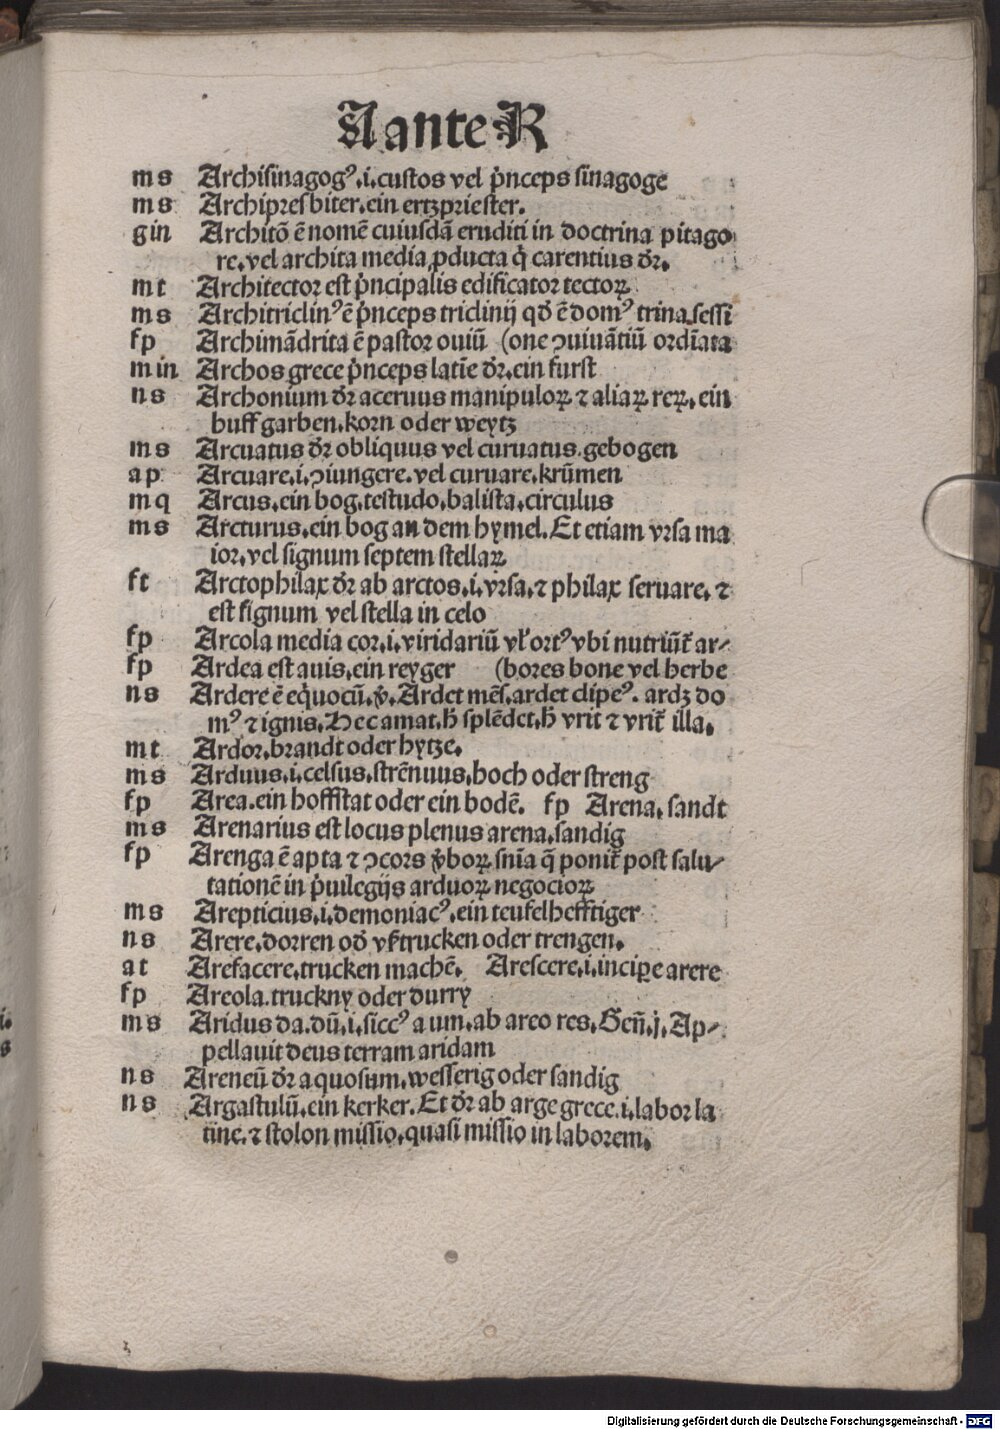 A ante R
ms Archisinagogꝰ.i.custos vel p̓nceps sinagoge
ms Archipresbiter.ein ertzpriester.
gin Architō ē nomē cuiusdā eruditi in doctrina pitago
re.vel archita media ꝓducta q̇ carentius dr̄.
mt Architector est p̓ncipalis edificator tectoꝝ
ms Architriclinꝰ ē p̓nceps triclinij qđ ē domꝰ trina sessi
fp Archimādrita ē pastor ouiū (one ꝯuiuātiū ordīata
min Archos grece p̓nceps latīe dr̄.ein furst
ns Archonium dr̄ aceruus manipuloꝝ ⁊ aliaꝝ reꝝ.ein
huff garben.korn oder weytz
ms Arcuatus dr̄ obliquus vel curuatus.gebogen
ap Arcuare.i.ꝯiungere.vel curuare.krūmen
mq Arcus.ein bog.testudo.balista.circulus
ms Arcturus.ein bog an dem hymel.Et etiam vrsa ma
ior.vel signum septem stellaꝝ
ft Arctophilax dr̄ ab arctos.i.vrsa.⁊ philax seruare.⁊
est signum vel stella in celo
fp Arcola media cor.i.viridariū vl̓ ortꝰ vbi nutriūt̄ ar-
fp Ardea est auis.ein reyger (bores bone vel herbe
ns Ardere ē eq̇uocū.v̓.Ardet mēs.ardet clipeꝰ. ardꝫ do
mꝰ ⁊ ignis.Hec amat.h̄ splēdet.h̄ vrit ⁊ vrit̄ illa.
mt Ardor.brandt oder hytze.
ms Arduus.i.celsus.strēnuus.hoch oder streng
fp Area.ein hoffstat oder ein bodē. fp Arena.sandt
ms Arenarius est locus plenus arena.sandig
fp Arenga ē apta ⁊ ꝯcors v̓boꝝ snīa q̄ ponit̄ post salu-
tationē in p̓uilegijs arduoꝝ negocioꝝ
ms Arepticius.i.demoniacꝰ.ein teufelhefftiger
ns Arere.dorren ođ vf̓trucken oder trengen.
at Arefacere.trucken machē. Arescere.i.incipe arere
fp Areola.truckny oder durry
ms Aridus da.dū.i.siccꝰ a um.ab areo res.Geñ.j.Ap-
pellauit deus terram aridam
ns Areneū dr̄ aquosum.wesserig oder sandig
ns Argastulū.ein kerker.Et dr̄ ab arge grece.i.labor la
tine.⁊ stolon missio.quasi missio in laborem.
Digitalisierung gefördert durch die Deutsche Forschungsgemeinschaft - DFG